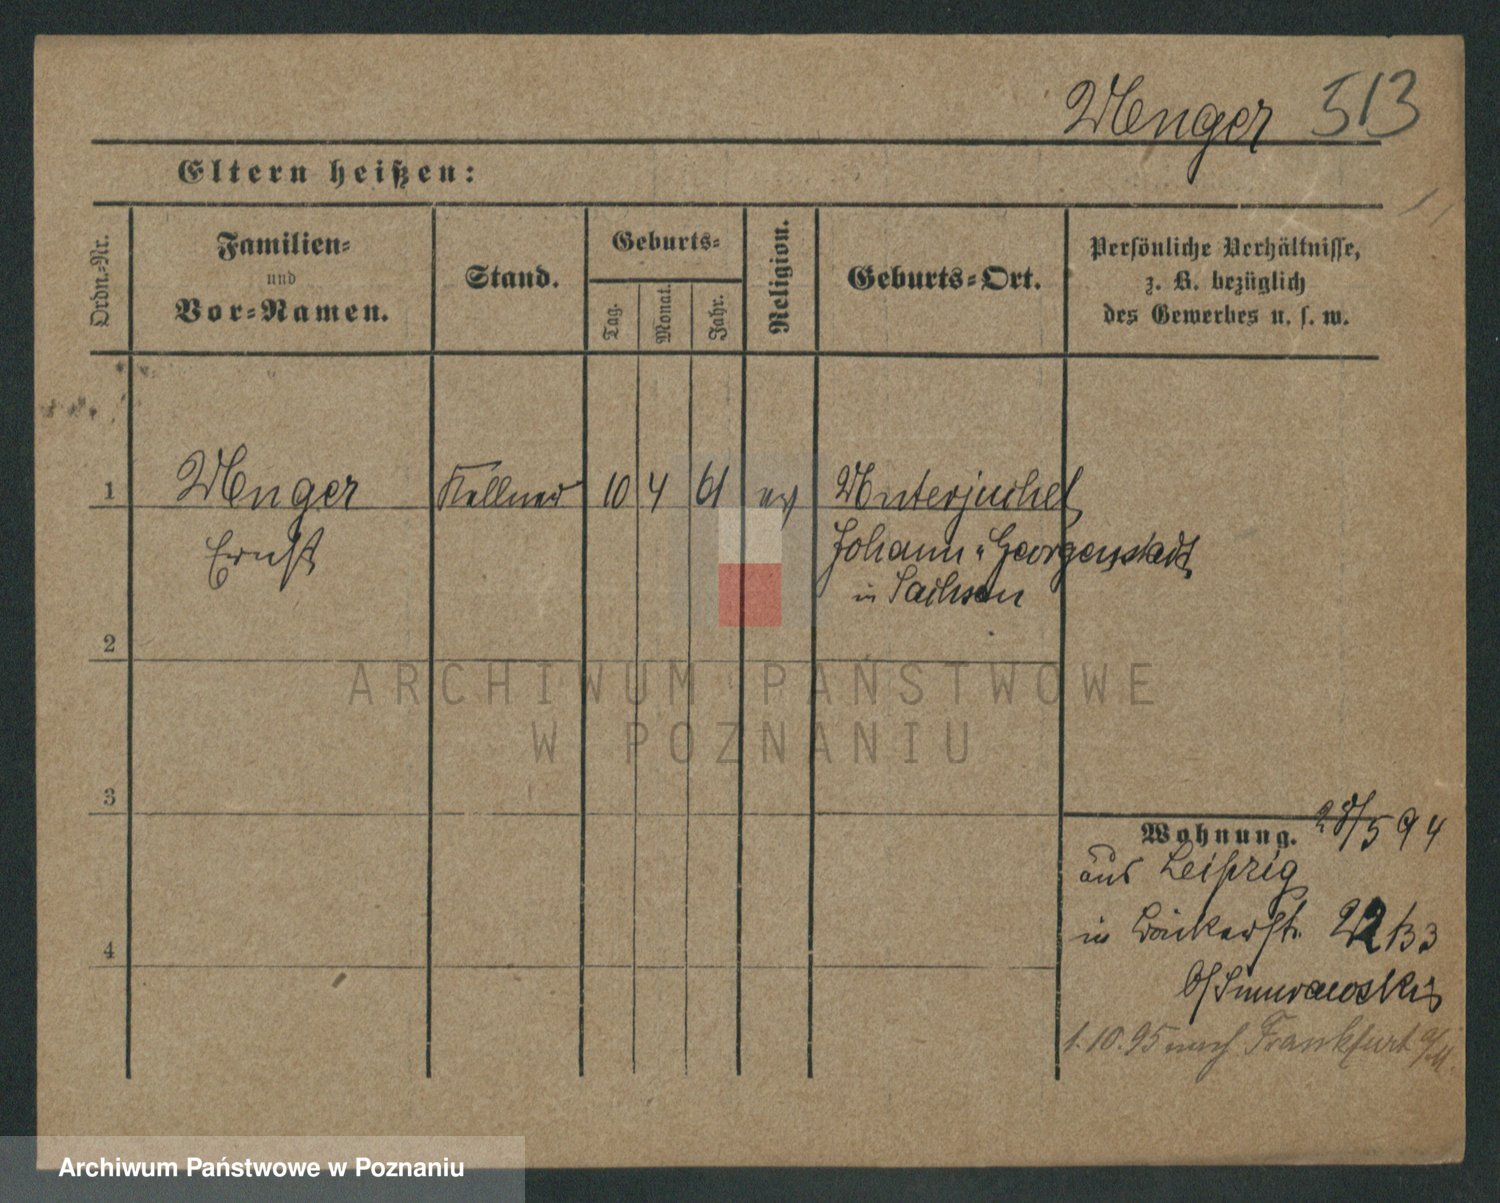 Wenger 513
Eltern heißen:
Ordn.-Nr.
Familien-
und
Vor-Namen.
Stand.
Geburts-
Tag.
Monat.
Jahr.
Religion.
Geburts-Ort.
Persönliche Verhältnisse,
z. B. bezüglich
des Gewerbes u. s. w.
1 Wenger Kellner 10 4 61 ev
Ernst
Johann-Georgenstadt
in Sachsen
2
ARCHIWUM PAŃSTWOWE
W POZNANIU
3
Wohnung. 28/5 94
aus Leipzig
in Bäckerstr. 22 b/
4
1.10.95 nach Frankfurt a/M.
Archiwum Państwowe w Poznaniu